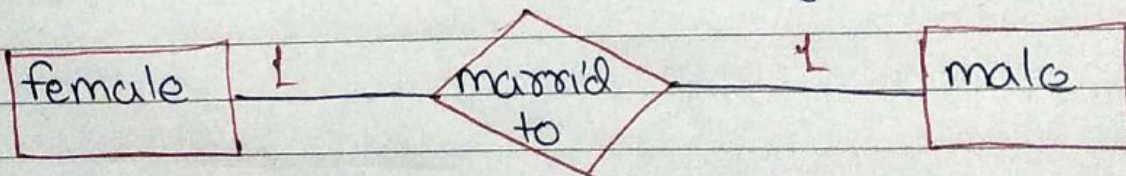 female 1 marrid 1 male
to